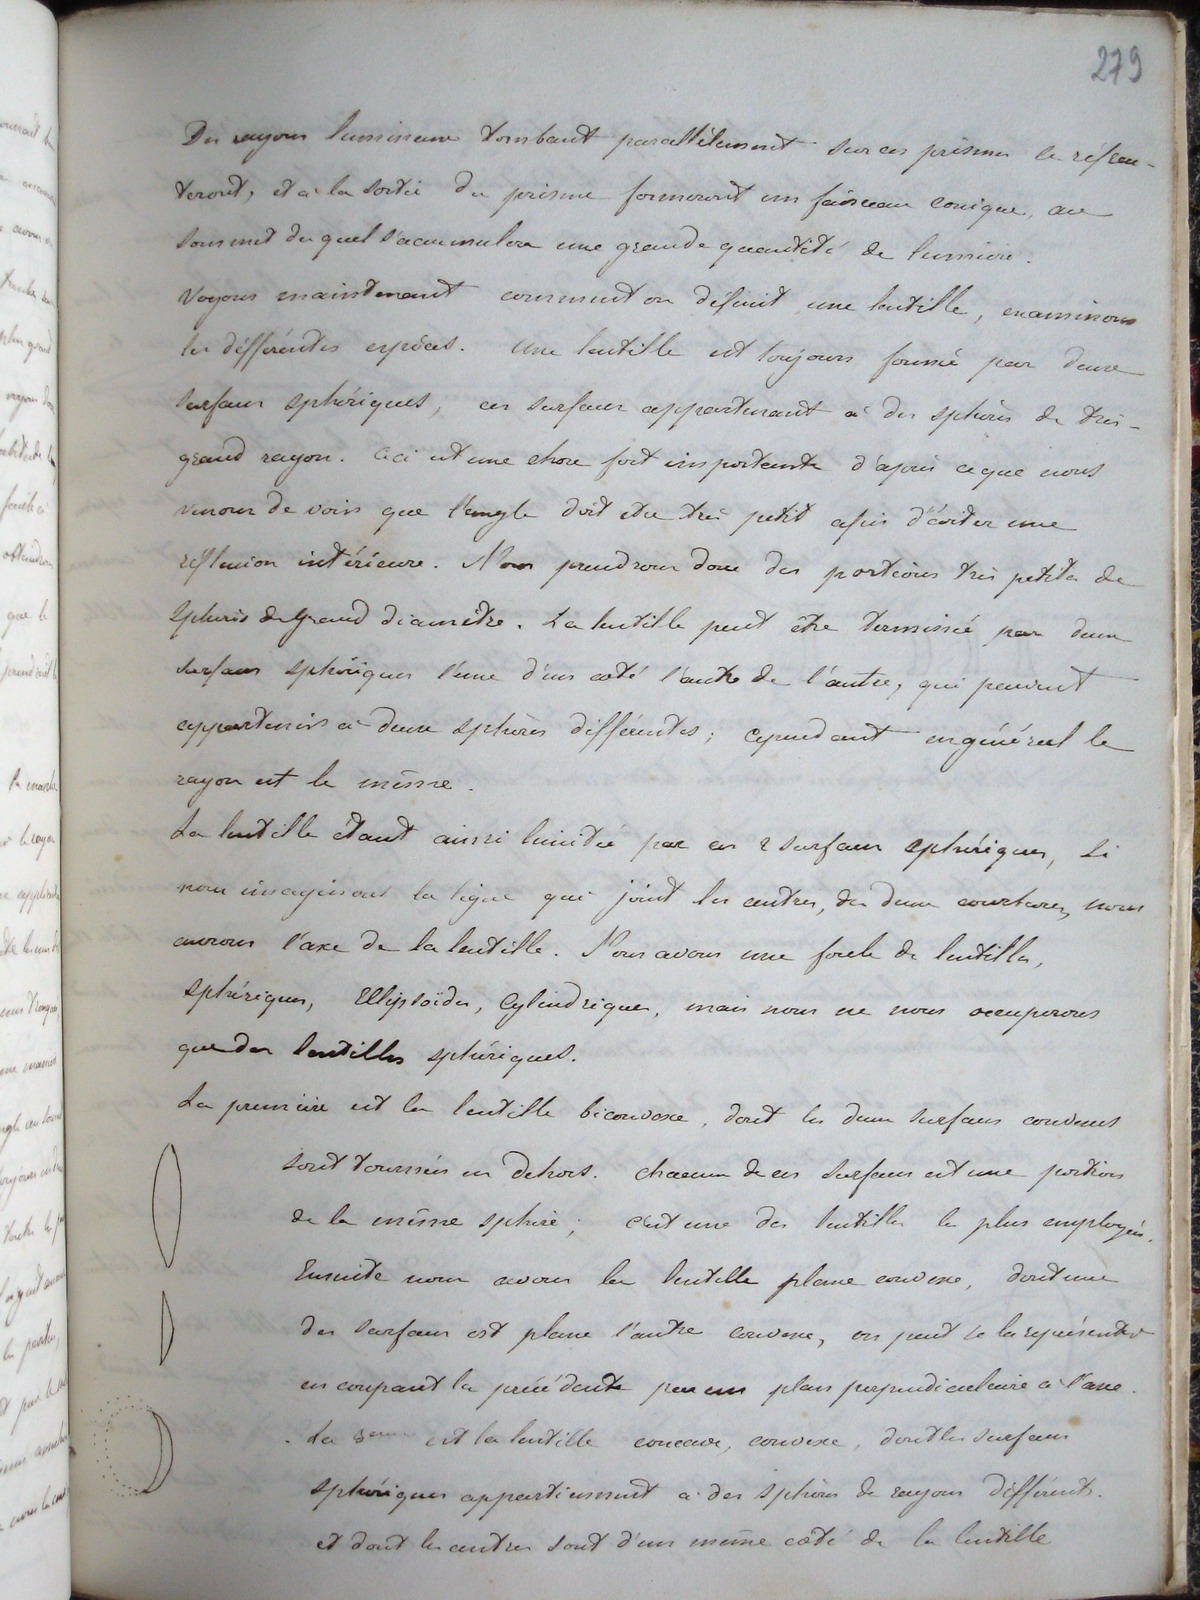 279
Des rayons lumineux tombant parallèlement sur ces prismes se réfrac-
teront, et à la sortie du prisme formeront un faisceau conique, au
sommet duquel s'accumulera une grande quantité de lumière.
Voyons maintenant comment on définit une lentille, examinons
les différentes espèces. Une lentille est toujours formée par deux
surfaces sphériques, ces surfaces appartenant à des sphères de très-
grand rayon. Ceci est une chose fort importante d'après ce que nous
venons de voir que l'angle doit être très petit afin d'éviter une
réflexion intérieure. Nous prendrons donc des portions très petites de
sphères de grand diamètre. La lentille peut être terminée par deux
surfaces sphériques l'une d'un coté l'autre de l'autre, qui peuvent
appartenir à deux sphères différentes; cependant en général le
rayon est le même.
La lentille étant ainsi limitée par ces 2 surfaces sphériques, si
nous imaginons la ligne qui joint les centres, des deux courbures, nous
aurons l'axe de la lentille. Nous avons une foule de lentilles,
sphériques, Ellipsoïdes, Cylindriques, mais nous ne nous occuperons
que des lentilles sphériques.
La première est la lentille biconvexe, dont les deux surfaces convexes
sont tournées en dehors. Chacune de ces surfaces est une portion
de la même sphère; c'est une des lentilles les plus employées.
Ensuite nous avons la lentille plane convexe, dont une
des surfaces est plane l'autre convexe, on peut se la représenter
en coupant la précédente par un plan perpendiculaire à l'axe.
La 3eme est la lentille concave, convexe, dont les surfaces
sphériques appartiennent à des sphères de rayons différents.
et dont les centres sont d'un même coté de la lentille